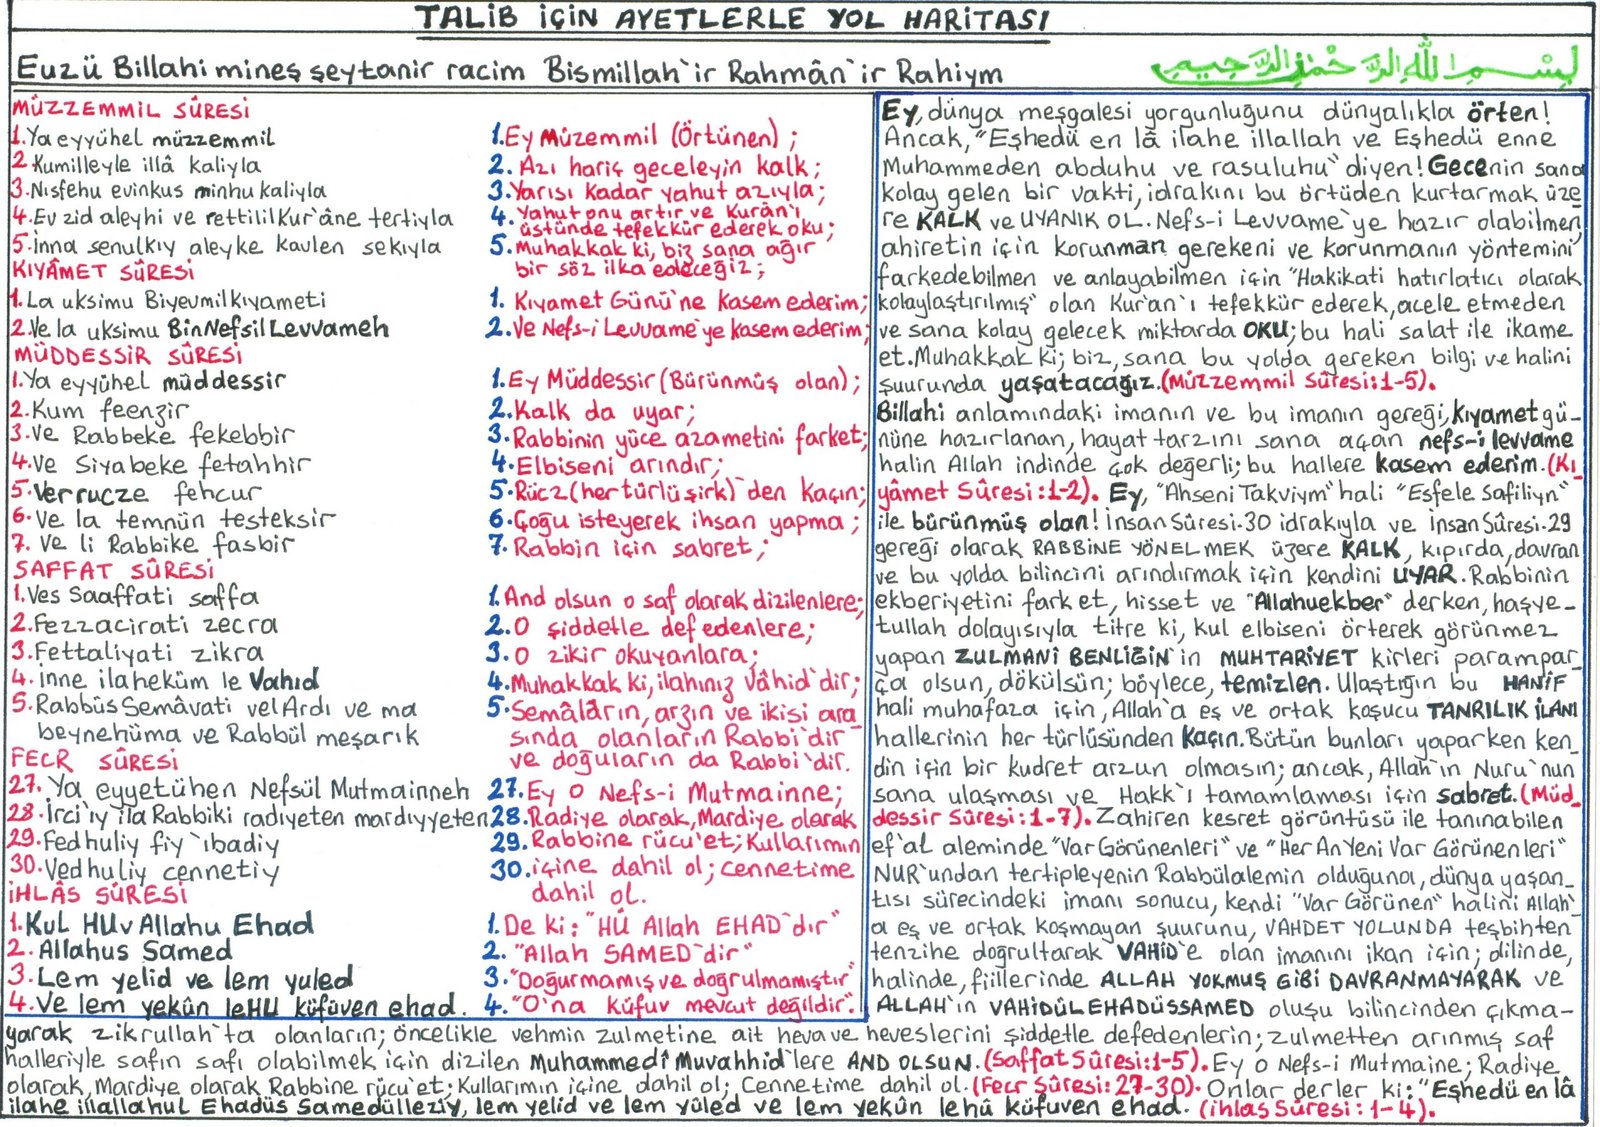 TALİB İÇİN AYETLERLE YOL HARİTASI
Euzü Billahi mineş şeytanir racim Bismillah`ir Rahmân`ir Rahiym
بِسْمِ اللهِ الرَّحْمٰنِ الرَّحِيمِ
MÜZZEMMİL SÛRESİ
1.Ya eyyühel müzzemmil
2 Kumilleyle illâ kaliyla
3.Nısfehu evinkus minhu kaliyla
4.Ev zid aleyhi ve rettilil Kur`âne tertiyla
5.İnna senulkıy aleyke kavlen sekıyla
KIYÂMET SÛRESİ
1.La uksimu Biyevmil kıyameti
2.Ve la uksimu BinNefsil Levvameh
MÜDDESSİR SÛRESİ
1.Ya eyyühel müddessir
2.Kum feenzir
3.Ve Rabbeke fekebbir
4.Ve Siyabeke fetahhir
5.Verrucze fehcur
6.Ve la temnün testeksir
7.Ve li Rabbike fasbir
SAFFAT SÛRESİ
1.Ves Saaffati saffa
2.Fezzacirati zecra
3.Fettaliyati zikra
4.İnne ilaheküm le Vahıd
5.Rabbüs Semâvati vel Ardı ve ma
beynehüma ve Rabbül meşarık
FECR SÛRESİ
27. Ya eyyetühen Nefsül Mutmainneh
28.İrci`ıy ila Rabbiki radıyeten mardıyyeten
29.Fedhuliy fiy `ıbadiy
30.Vedhuliy cennetiy
İHLÂS SÛRESİ
1.Kul HUv Allahu Ehad
2.Allahus Samed
3.Lem yelid ve lem yuled
4.Ve lem yekûn leHU küfüven ehad.
1.Ey Müzemmil (Örtünen) ;
2. Azı hariç geceleyin kalk;
3.Yarısı kadar yahut azıyla;
4. Yahut onu artır ve Kurân`ı
üstünde tefekkür ederek oku;
5. Muhakkak ki, biz sana ağır
bir söz ilka edeceğiz;
1. Kıyamet Günü`ne kasem ederim;
2.Ve Nefs-i Levvame`ye kasem ederim;
1.Ey Müddessir (Bürünmüş olan);
2.Kalk da uyar;
3.Rabbinin yüce azametini farket;
4.Elbiseni arındır;
5.Rücz (her türlü şirk)`den kaçın;
6.Çoğu isteyerek ihsan yapma ;
7.Rabbin için sabret;
1.And olsun o saf olarak dizilenlere;
2.O şiddetle def edenlere;
3.O zikir okuyanlara;
4.Muhakkak ki, ilahınız Vâhid`dir;
5.Semâların, arzın ve ikisi ara_
sında olanların Rabbi`dir
ve doğuların da Rabbi`dir.
27.Ey O Nefs-i Mutmainne;
28.Radiye olarak,Mardiye olarak
29.Rabbine rücu`et; Kullarımın
30.içine dahil ol; cennetime
dahil ol.
1.De ki: "HÛ Allah EHAD`dır"
2. "Allah SAMED`dir"
3."Doğurmamış ve doğrulmamıştır"
4."O`na Küfuv mevcut değildir".
Ey, dünya meşgalesi yorgunluğunu dünyalıkla örten!
Ancak, "Eşhedü en lâ ilahe illallah ve Eşhedü enne
Muhammeden abduhu ve rasuluhu" diyen! Gecenin sana
kolay gelen bir vakti, idrakını bu örtüden kurtarmak üze_
re KALK ve UYANIK OL. Nefs-i Levvame`ye hazır olabilmen,
ahiretin için korunman gerekeni ve korunmanın yöntemini
farkedebilmen ve anlayabilmen için "Hakikati hatırlatıcı olarak
kolaylaştırılmış" olan Kur'an`ı tefekkür ederek, acele etmeden
ve sana kolay gelecek miktarda OKU; bu hali salat ile ikame
et. Muhakkak ki; biz, sana bu yolda gereken bilgi ve halini
şuurunda yaşatacağız.(Müzzemmil Sûresi:1-5).
Billahi anlamındaki imanın ve bu imanın gereği, kıyamet gü-
nüne hazırlanan, hayat tarzını sana açan nefs-i levvame
halin Allah indinde çok değerli; bu hallere kasem ederim.(Kı_
yâmet Sûresi:1-2). Ey, "Ahseni Takviym" hali "Esfele Safiliyn"
ile bürünmüş olan! İnsan Sûresi-30 idrakıyla ve İnsan Sûresi-29
gereği olarak RABBİNE YÖNELMEK üzere KALK, kıpırda, davran
ve bu yolda bilincini arındırmak için kendini UYAR. Rabbinin
ekberiyetini fark et, hisset ve "Allahuekber" derken, haşye_
tullah dolayısıyla titre ki, kul elbiseni örterek görünmez
yapan ZULMANİ BENLİĞİN`in MUHTARİYET kirleri parampar_
ça olsun, dökülsün; böylece, temizlen. Ulaştığın bu HANİF
hali muhafaza için, Allah'a eş ve ortak koşucu TANRILIK İLANI
hallerinin her türlüsünden kaçın. Bütün bunları yaparken ken_
din için bir kudret arzun olmasın; ancak, Allah`ın Nuru`nun
sana ulaşması ve Hakk`ı tamamlaması için sabret.(Müd_
dessir Sûresi:1-7). Zahiren kesret görüntüsü ile tanınabilen
ef'al aleminde "Var Görünenleri" ve "Her An Yeni Var Görünenleri"
NUR`undan tertipleyenin Rabbülalemin olduğuna, dünya yaşan_
tısı sürecindeki imanı sonucu, kendi "Var Görünen" halini Allah`
a eş ve ortak koşmayan şuurunu, VAHDET YOLUNDA teşbihten
tenzihe doğrultarak VAHİD`E olan imanını ikan için; dilinde,
halinde, fiillerinde ALLAH YOKMUŞ GİBİ DAVRANMAYARAK ve
ALLAH`ın VAHİDÜL EHADÜSSAMED oluşu bilincinden çıkma-
yarak zikrullah`ta olanların; öncelikle vehmin zulmetine ait heva ve heveslerini şiddetle defedenlerin; zulmetten arınmış saf
halleriyle safın safı olabilmek için dizilen Muhammedî Muvahhid`lere AND OLSUN. (Saffat Sûresi:1-5). Ey O Nefs-i Mutmaine; Radiye
olarak, Mardiye olarak Rabbine rücu`et; Kullarımın içine dahil ol; Cennetime dahil ol. (Fecr Sûresi:27-30). Onlar derler ki: "Eşhedü en lâ
ilahe illallahul Ehadüs Samedülleziy, lem yelid ve lem yûled ve lem yekûn lehû küfüven ehad. (İhlas Sûresi: 1-4).